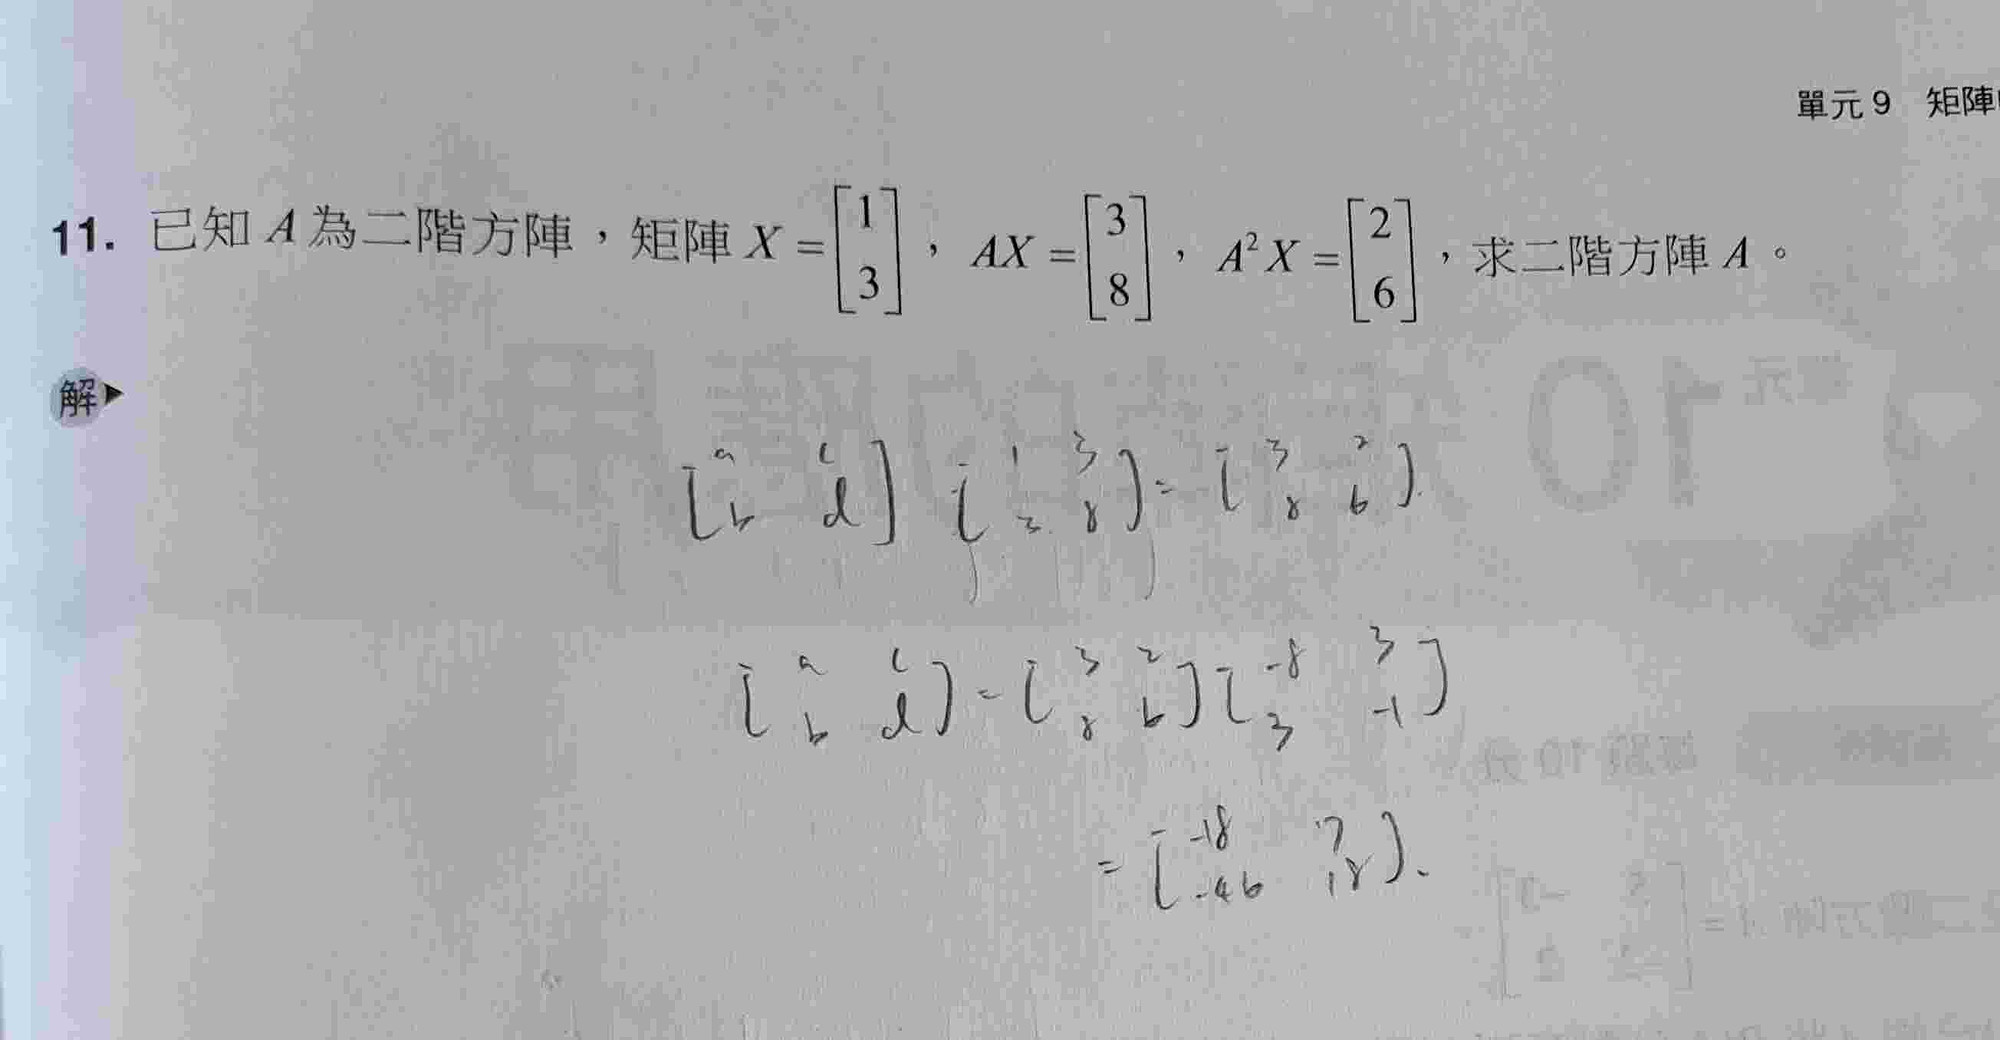 單元 9 矩陣
11. 已知 A 為二階方陣，矩陣 X = [1 3]，AX = [3 8]，A² X = [2 6]，求二階方陣 A。
解
[a c b d] [1 3 3 8] = [3 2 8 6]
[a c b d] = [3 2 8 6] [-8 3 3 -1]
= [-18 7 -46 18].